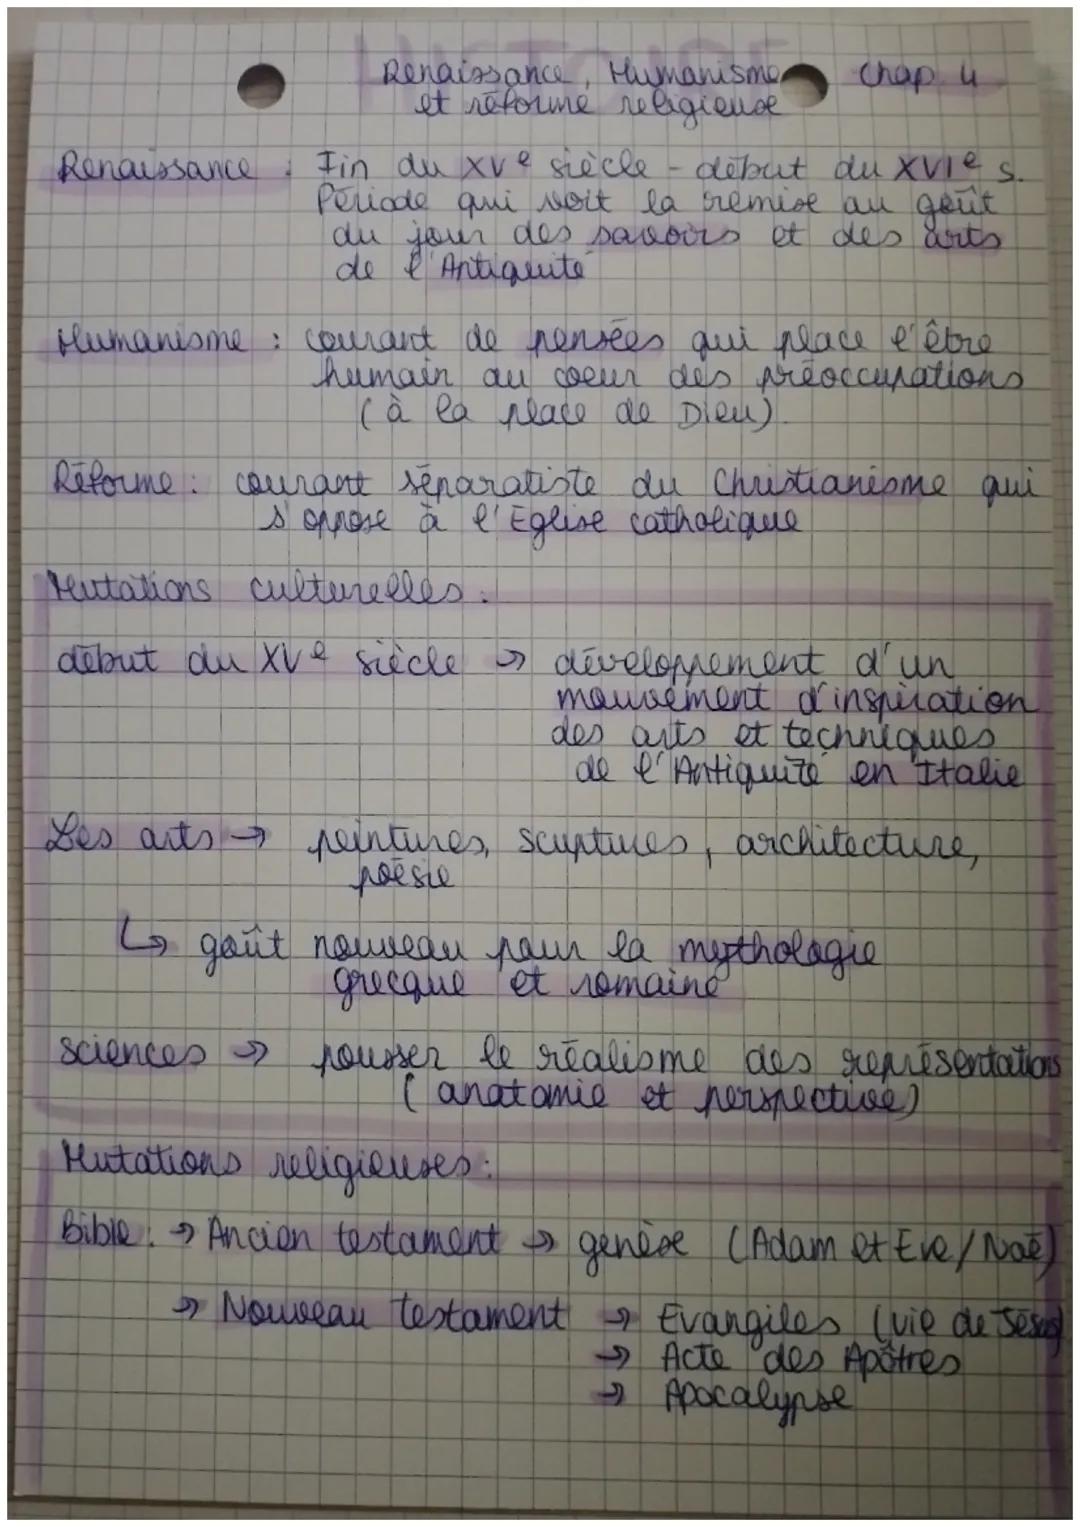 Renaissance, Humanisme Chap 4
et réforme religieuse
Renaissance : Fin du XVe siècle - début du XVIe s.
Période qui voit la remise au goût
du jour des savoirs et des arts
de l'Antiquité
Humanisme : courant de pensées qui place l'être
humain au coeur des préoccupations
(à la place de Dieu).
Réforme : courant séparatiste du Christianisme qui
s'oppose à l'Eglise catholique
Mutations culturelles :
début du XVe siècle → développement d'un
mouvement d'inspiration
des arts et techniques
de l'Antiquité en Italie
Les arts → peintures, scuptures, architecture,
poésie
↳ goût nouveau pour la mythologie
grecque et romaine
sciences → pousser le réalisme des représentations
(anatomie et perspective)
Mutations religieuses :
Bible : → Ancien testament → genèse (Adam et Eve/Noé)
→ Nouveau testament → Evangiles (vie de Jésus)
→ Acte des Apôtres
→ Apocalypse